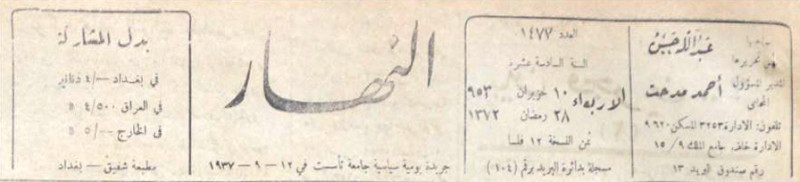 صاحبها
عبد الله حسن
رئيس تحريرها
المدير المسؤول أحمد مدحت
المحامي
تلفون: الادارة ٣٢٥٣ المسكن ٩٦٢٠
الادارة خلف جامع الملك ١٥/٩
رقم صندوق البريد ١٣
العدد ١٤٧٧
السنة السادسة عشرة
الاربعاء ١٠ حزيران ٩٥٣
٢٨ رمضان ١٣٧٢
ثمن النسخة ١٢ فلسا
مسجلة بدائرة البريد برقم (١٠٤)
النهار
جريدة يومية سياسية جامعة تأسست في ١٢ - ٩ - ١٩٣٧
بدل المشاركة
في بغداد -/٤ دنانير
في العراق ٤/٥٠٠ »
في الخارج -/٥ »
مطبعة شفيق - بغداد